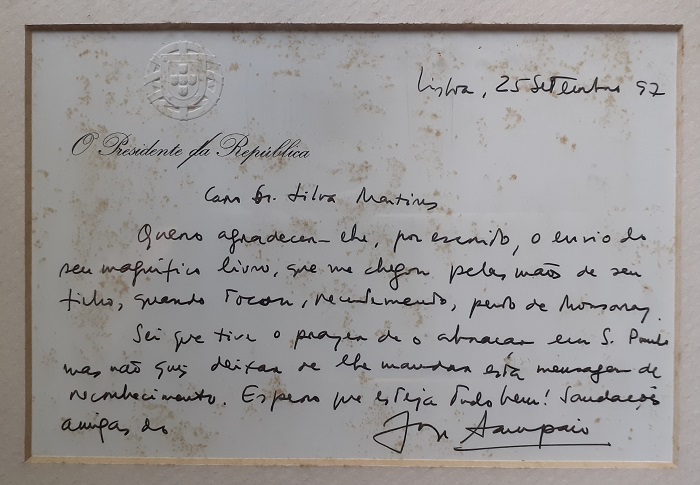 Lisboa, 25 Setembro 97
O Presidente da República
Caro Dr. Silva Martins
Quero agradecer-lhe, por escrito, o envio do
seu magnífico livro, que me chegou pelas mãos de seu
filho, quando tocou, recentemente, perto de Monsaraz.
Sei que tive o prazer de o abraçar em S. Paulo
mas não quis deixar de lhe mandar esta mensagem de
reconhecimento. Espero que esteja tudo bem! Saudações
amigas do Jorge Sampaio